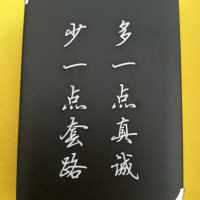 多一点真诚
少一点套路